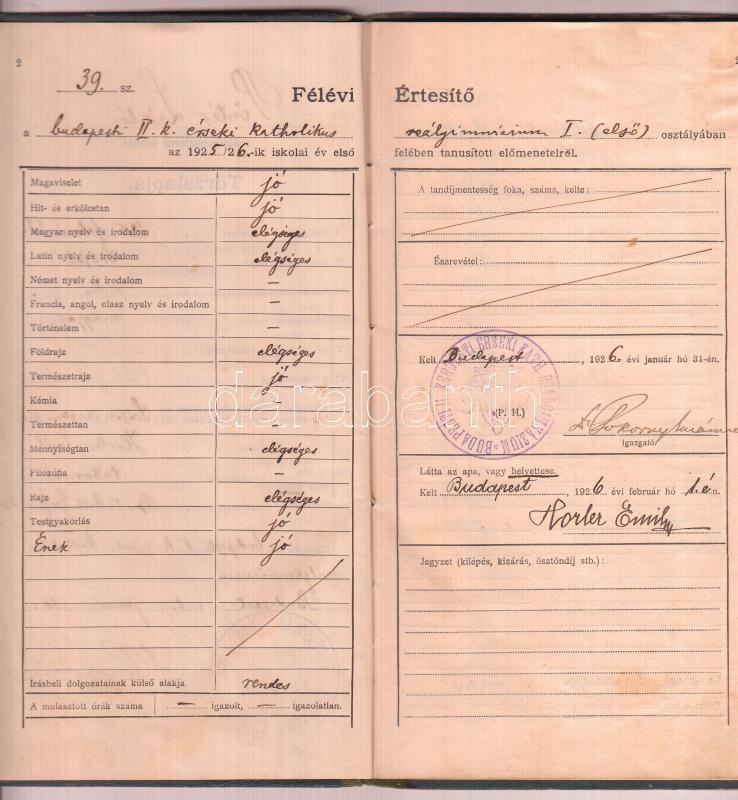 2
39. sz.
Félévi
a budapesti II-k. érseki katholikus
az 1925/26.-ik iskolai év első
Magaviselet jó
Hit- és erkölcstan jó
Magyar nyelv és irodalom elégséges
Latin nyelv és irodalom elégséges
Német nyelv és irodalom —
Francia, angol, olasz nyelv és irodalom —
Történelem —
Földrajz elégséges
Természetrajz jó
Kémia —
Természettan —
Mennyiségtan elégséges
Filozófia —
Rajz elégséges
Testgyakorlás jó
Ének jó
Írásbeli dolgozatainak külső alakja rendes
A mulasztott órák száma — igazolt, — igazolatlan.
2
Értesítő
reálgimnázium I. (első) osztályában
felében tanusított előmenetelről.
A tandíjmentesség foka, száma, kelte:
Észrevétel:
Kelt Budapest, 1926. évi január hó 31-én.
(P. H.)
igazgató
Látta az apa, vagy helyettese.
Kelt Budapest, 1926 évi február hó 1.-én.
Horler Emil
Jegyzet (kilépés, kizárás, ösztöndíj stb.):
darabanth